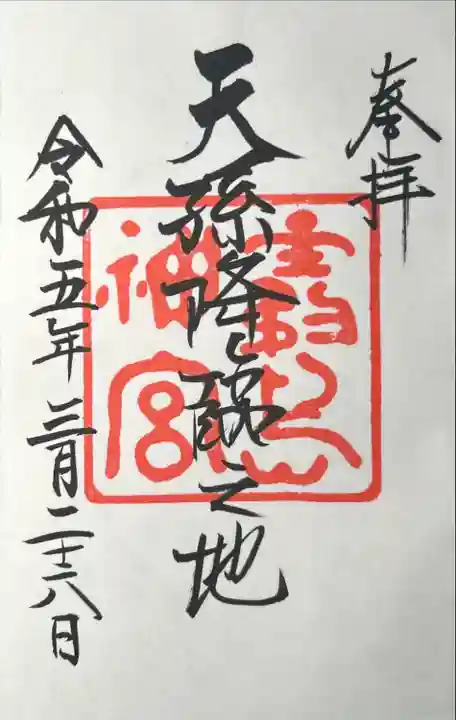 奉拝
天孫降臨之地
霧島
神宮
令和五年三月二十六日